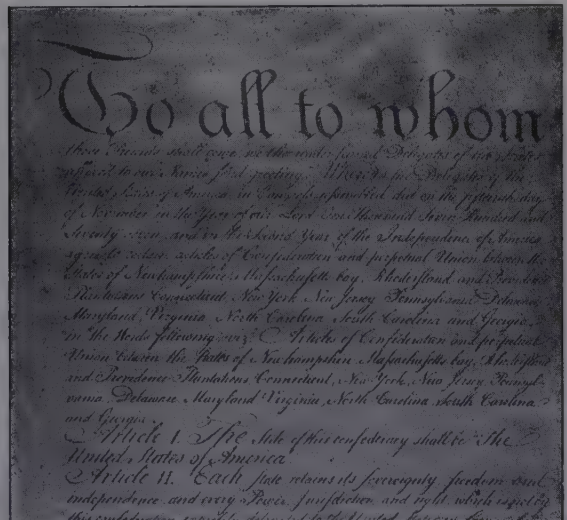 To all to whom
these Presents shall come, we the under signed Delegates of the States
affixed to our Names send greeting. Whereas the Delegates of the
United States of America in Congress assembled did on the fifteenth day
of November in the Year of our Lord One Thousand Seven Hundred and
Seventy seven, and in the Second Year of the Independence of America
agree to certain articles of Confederation and perpetual Union between the
States of Newhampshire, Massachusetts bay, Rhodeisland and Providence
Plantations Connecticut, New York New Jersey Pennsylvania Delaware
Maryland, Virginia, North Carolina South Carolina and Georgia
in the Words following, viz. Articles of Confederation and perpetual
Union between the States of Newhampshire Massachusetts bay, Rhodeisland
and Providence Plantations Connecticut, New York, New Jersey, Pennsyl
vania, Delaware Maryland Virginia, North Carolina South Carolina
and Georgia.
Article I. The Stile of this confederacy shall be "The
United States of America
Article II. Each state retains its sovereignty, freedom and
independence, and every Power, Jurisdiction and right, which is not by
this confederation expressly delegated to the United